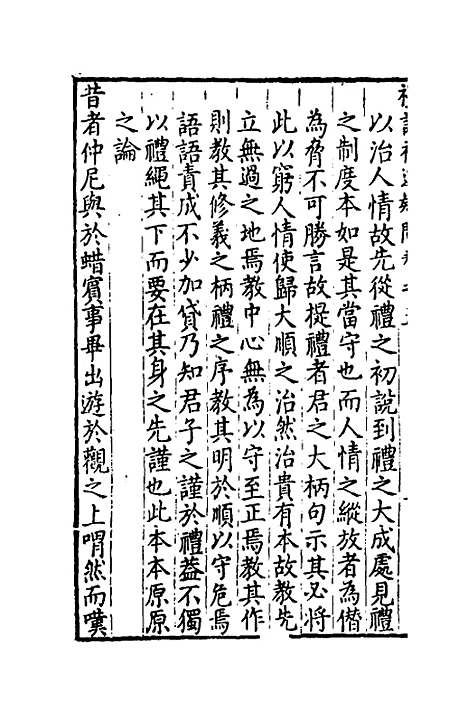 以治人情故先從禮之初說到禮之大成處見禮
之制度本如是其當守也而人情之縱放者為僭
為脅不可勝言故提禮者君之大柄句示其必將
此以窮人情使歸大順之治然治貴有本故教先
立無過之地焉教中心無為以守至正焉教其作
則教其修義之柄禮之序教其明於順以守危焉
語語責成不少加貸乃知君子之謹於禮葢不獨
以禮繩其下而要在其身之先謹也此本本原原
之論
昔者仲尼與於蜡賓事畢出遊於觀之上喟然而嘆